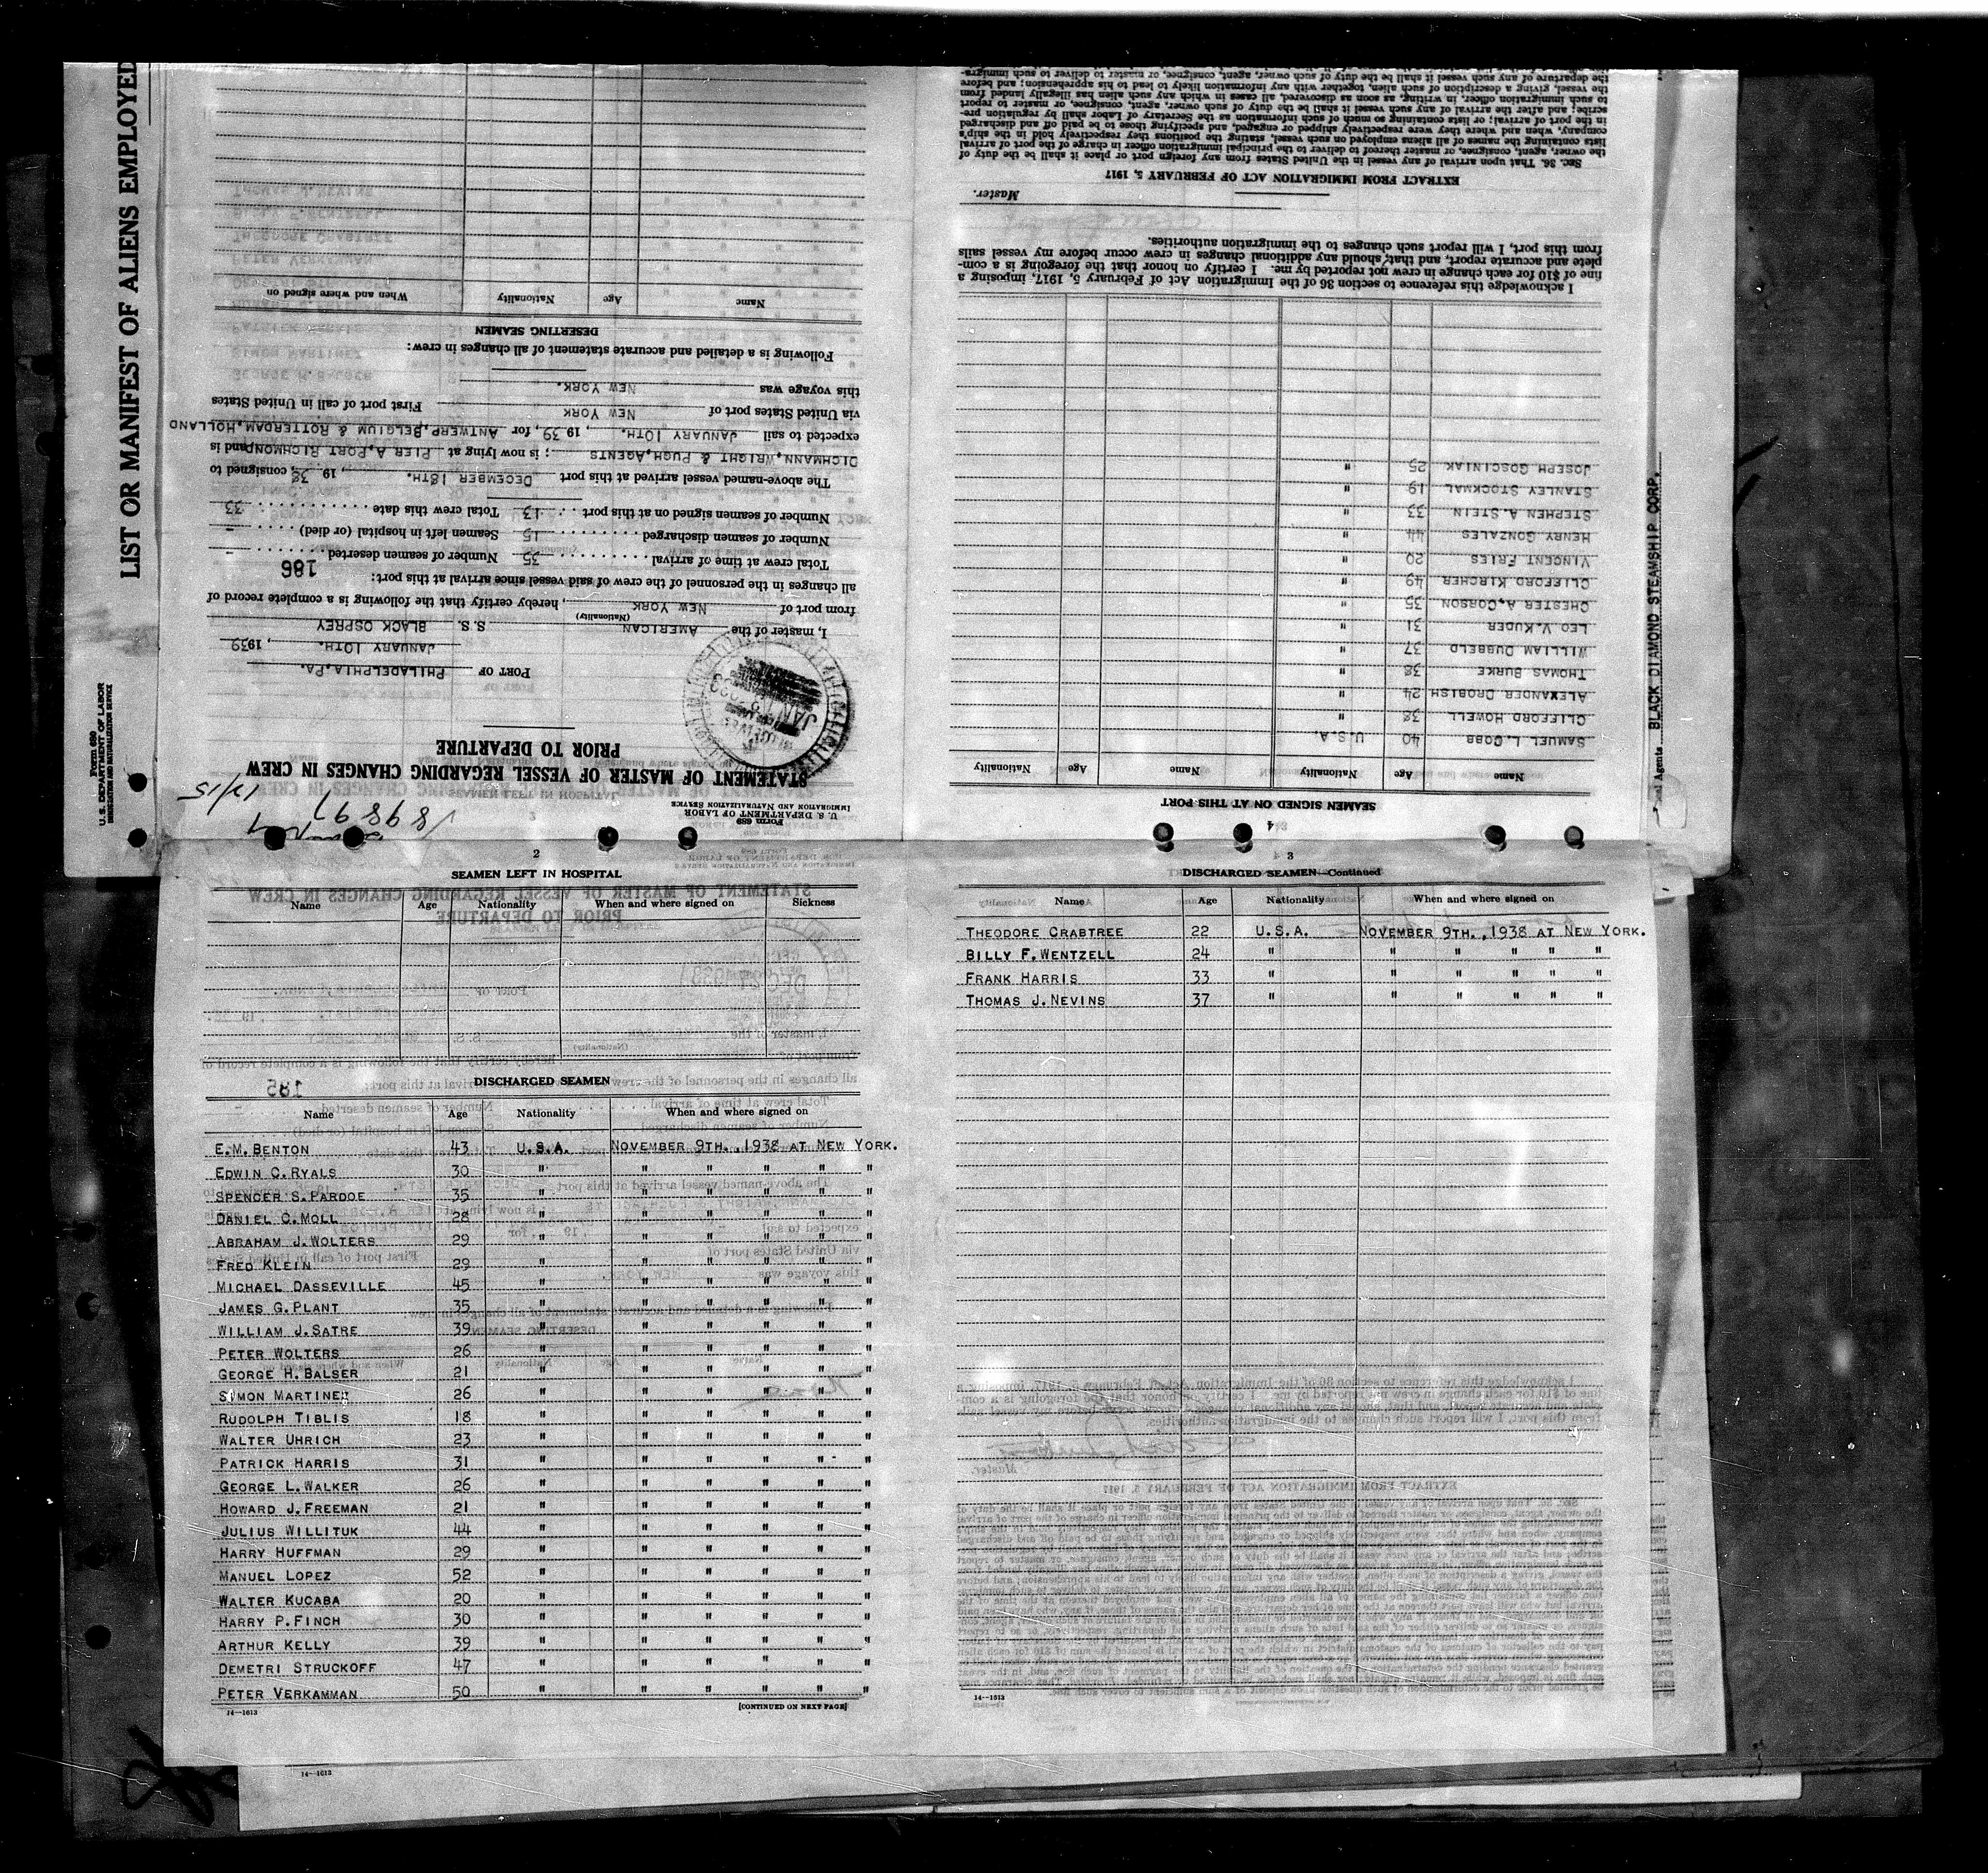 LIST OR MANIFEST OF ALIENS EMPLOYED
Form 680
U. S. DEPARTMENT OF LABOR
IMMIGRATION AND NATURALIZATION SERVICE
Form 689
U. S. DEPARTMENT OF LABOR
IMMIGRATION AND NATURALIZATION SERVICE
89897
12/15
STATEMENT OF MASTER OF VESSEL REGARDING CHANGES IN CREW
PRIOR TO DEPARTURE
PORT OF PHILADELPHIA, PA.
JANUARY 10TH. , 1939
I, master of the AMERICAN S. S. BLACK OSPREY
(Nationality)
from port of NEW YORK , hereby certify that the following is a complete record of
all changes in the personnel of the crew of said vessel since arrival at this port:
186
Total crew at time of arrival 35 Number of seamen deserted -
Number of seamen discharged 15 Seamen left in hospital (or died) -
Number of seamen signed on at this port 13 Total crew this date 33
The above-named vessel arrived at this port DECEMBER 18TH. , 19 38, consigned to
DICHMANN, WRIGHT & PUGH, AGENTS ; is now lying at PIER A, PORT RICHMOND, and is
expected to sail JANUARY 10TH. , 19 39, for ANTWERP, BELGIUM & ROTTERDAM, HOLLAND
via United States port of NEW YORK First port of call in United States
this voyage was NEW YORK.
Following is a detailed and accurate statement of all changes in crew:
DESERTING SEAMEN
Name Age Nationality When and where signed on
4
SEAMEN SIGNED ON AT THIS PORT
Name Age Nationality Name Age Nationality
SAMUEL L. COBB 40 U.S.A.
CLIFFORD HOWELL 38 "
ALEXANDER DROBISH 24 "
THOMAS BURKE 38 "
WILLIAM DUBBELD 37 "
LEO V. KUDER 31 "
CHESTER A. CORSON 35 "
CLIFFORD KIRCHER 49 "
VINCENT FRIES 20 "
HENRY GONZALES 44 "
STEPHEN A. STEIN 33 "
STANLEY STOCKMAL 19 "
JOSEPH GOSCINIAK 25 "
I acknowledge this reference to section 36 of the Immigration Act of February 5, 1917, imposing a
fine of $10 for each change in crew not reported by me. I certify on honor that the foregoing is a com-
plete and accurate report, and that, should any additional changes in crew occur before my vessel sails
from this port, I will report such changes to the immigration authorities.
Master.
EXTRACT FROM IMMIGRATION ACT OF FEBRUARY 5, 1917
SEC. 36. That upon arrival of any vessel in the United States from any foreign port or place it shall be the duty of
the owner, agent, consignee, or master thereof to deliver to the principal immigration officer in charge of the port of arrival
lists containing the names of all aliens employed on such vessel, stating the positions they respectively hold in the ship's
company, when and where they were respectively shipped or engaged, and specifying those to be paid off and discharged
in the port of arrival; or lists containing so much of such information as the Secretary of Labor shall by regulation pre-
scribe; and after the arrival of any such vessel it shall be the duty of such owner, agent, consignee, or master to report
to such immigration officer, in writing, as soon as discovered, all cases in which any such alien has illegally landed from
the vessel, giving a description of such alien, together with any information likely to lead to his apprehension; and before
the departure of any such vessel it shall be the duty of such owner, agent, consignee, or master to deliver to such immigra-
Agents BLACK DIAMOND STEAMSHIP CORP.
2
SEAMEN LEFT IN HOSPITAL
Name Age Nationality When and where signed on Sickness
DISCHARGED SEAMEN
Name Age Nationality When and where signed on
E. M. BENTON 43 U.S.A. NOVEMBER 9TH., 1938 AT NEW YORK.
EDWIN C. RYALS 30 " " " " " "
SPENCER S. PARDOE 35 " " " " " "
DANIEL C. MOLL 28 " " " " " "
ABRAHAM J. WOLTERS 29 " " " " " "
FRED KLEIN 29 " " " " " "
MICHAEL DASSEVILLE 45 " " " " " "
JAMES G. PLANT 35 " " " " " "
WILLIAM J. SATRE 39 " " " " " "
PETER WOLTERS 26 " " " " " "
GEORGE H. BALSER 21 " " " " " "
SIMON MARTINEZ 26 " " " " " "
RUDOLPH TIBLIS 18 " " " " " "
WALTER UHRICH 23 " " " " " "
PATRICK HARRIS 31 " " " " " "
GEORGE L. WALKER 26 " " " " " "
HOWARD J. FREEMAN 21 " " " " " "
JULIUS WILLITUK 44 " " " " " "
HARRY HUFFMAN 29 " " " " " "
MANUEL LOPEZ 52 " " " " " "
WALTER KUCABA 20 " " " " " "
HARRY P. FINCH 30 " " " " " "
ARTHUR KELLY 39 " " " " " "
DEMETRI STRUCKOFF 47 " " " " " "
PETER VERKAMMAN 50 " " " " " "
14—1613 [CONTINUED ON NEXT PAGE]
3
DISCHARGED SEAMEN—Continued
Name Age Nationality When and where signed on
THEODORE CRABTREE 22 U.S.A. NOVEMBER 9TH., 1938 AT NEW YORK.
BILLY F. WENTZELL 24 " " " " " "
FRANK HARRIS 33 " " " " " "
THOMAS J. NEVINS 37 " " " " " "
14—1613
14—1613